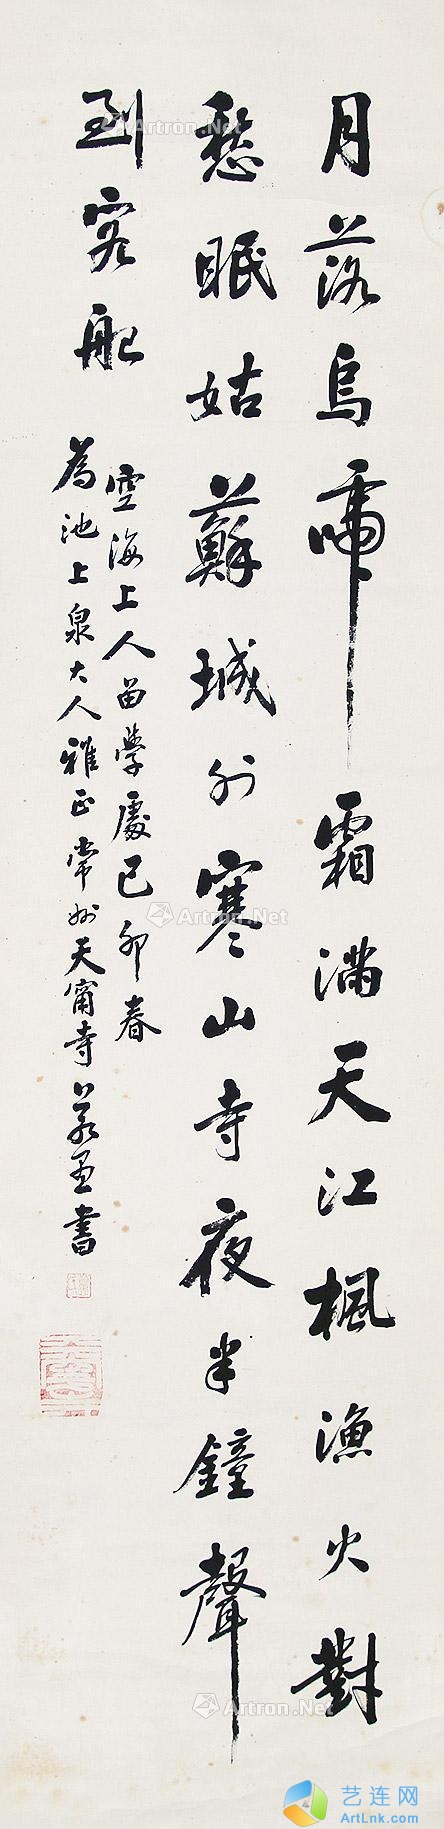 月落烏啼霜滿天江楓漁火對
愁眠姑蘇城外寒山寺夜半鐘聲
到客船
空海上人留學處己卯春
為池上泉大人雅正常州天甯寺書
Artron.Net
Artron.Net
Artron.Net
Artron.Net
Artron.Net
Artron.Net
艺连网
ArtLnk.com